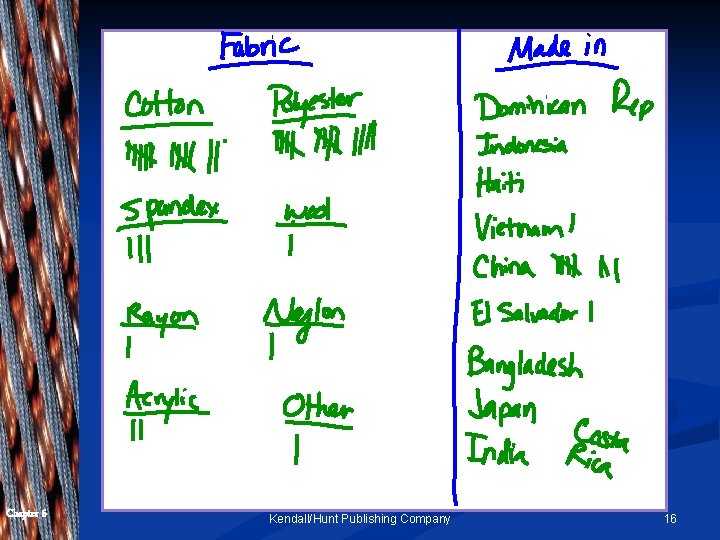 Fabric
Cotton Polyester
Spandex Wool
Rayon Nylon
Acrylic Other
Made in
Dominican Rep
Indonesia
Haiti
Vietnam
China
El Salvador
Bangladesh
Japan
India Costa Rica
Chapter 6
Kendall/Hunt Publishing Company
16